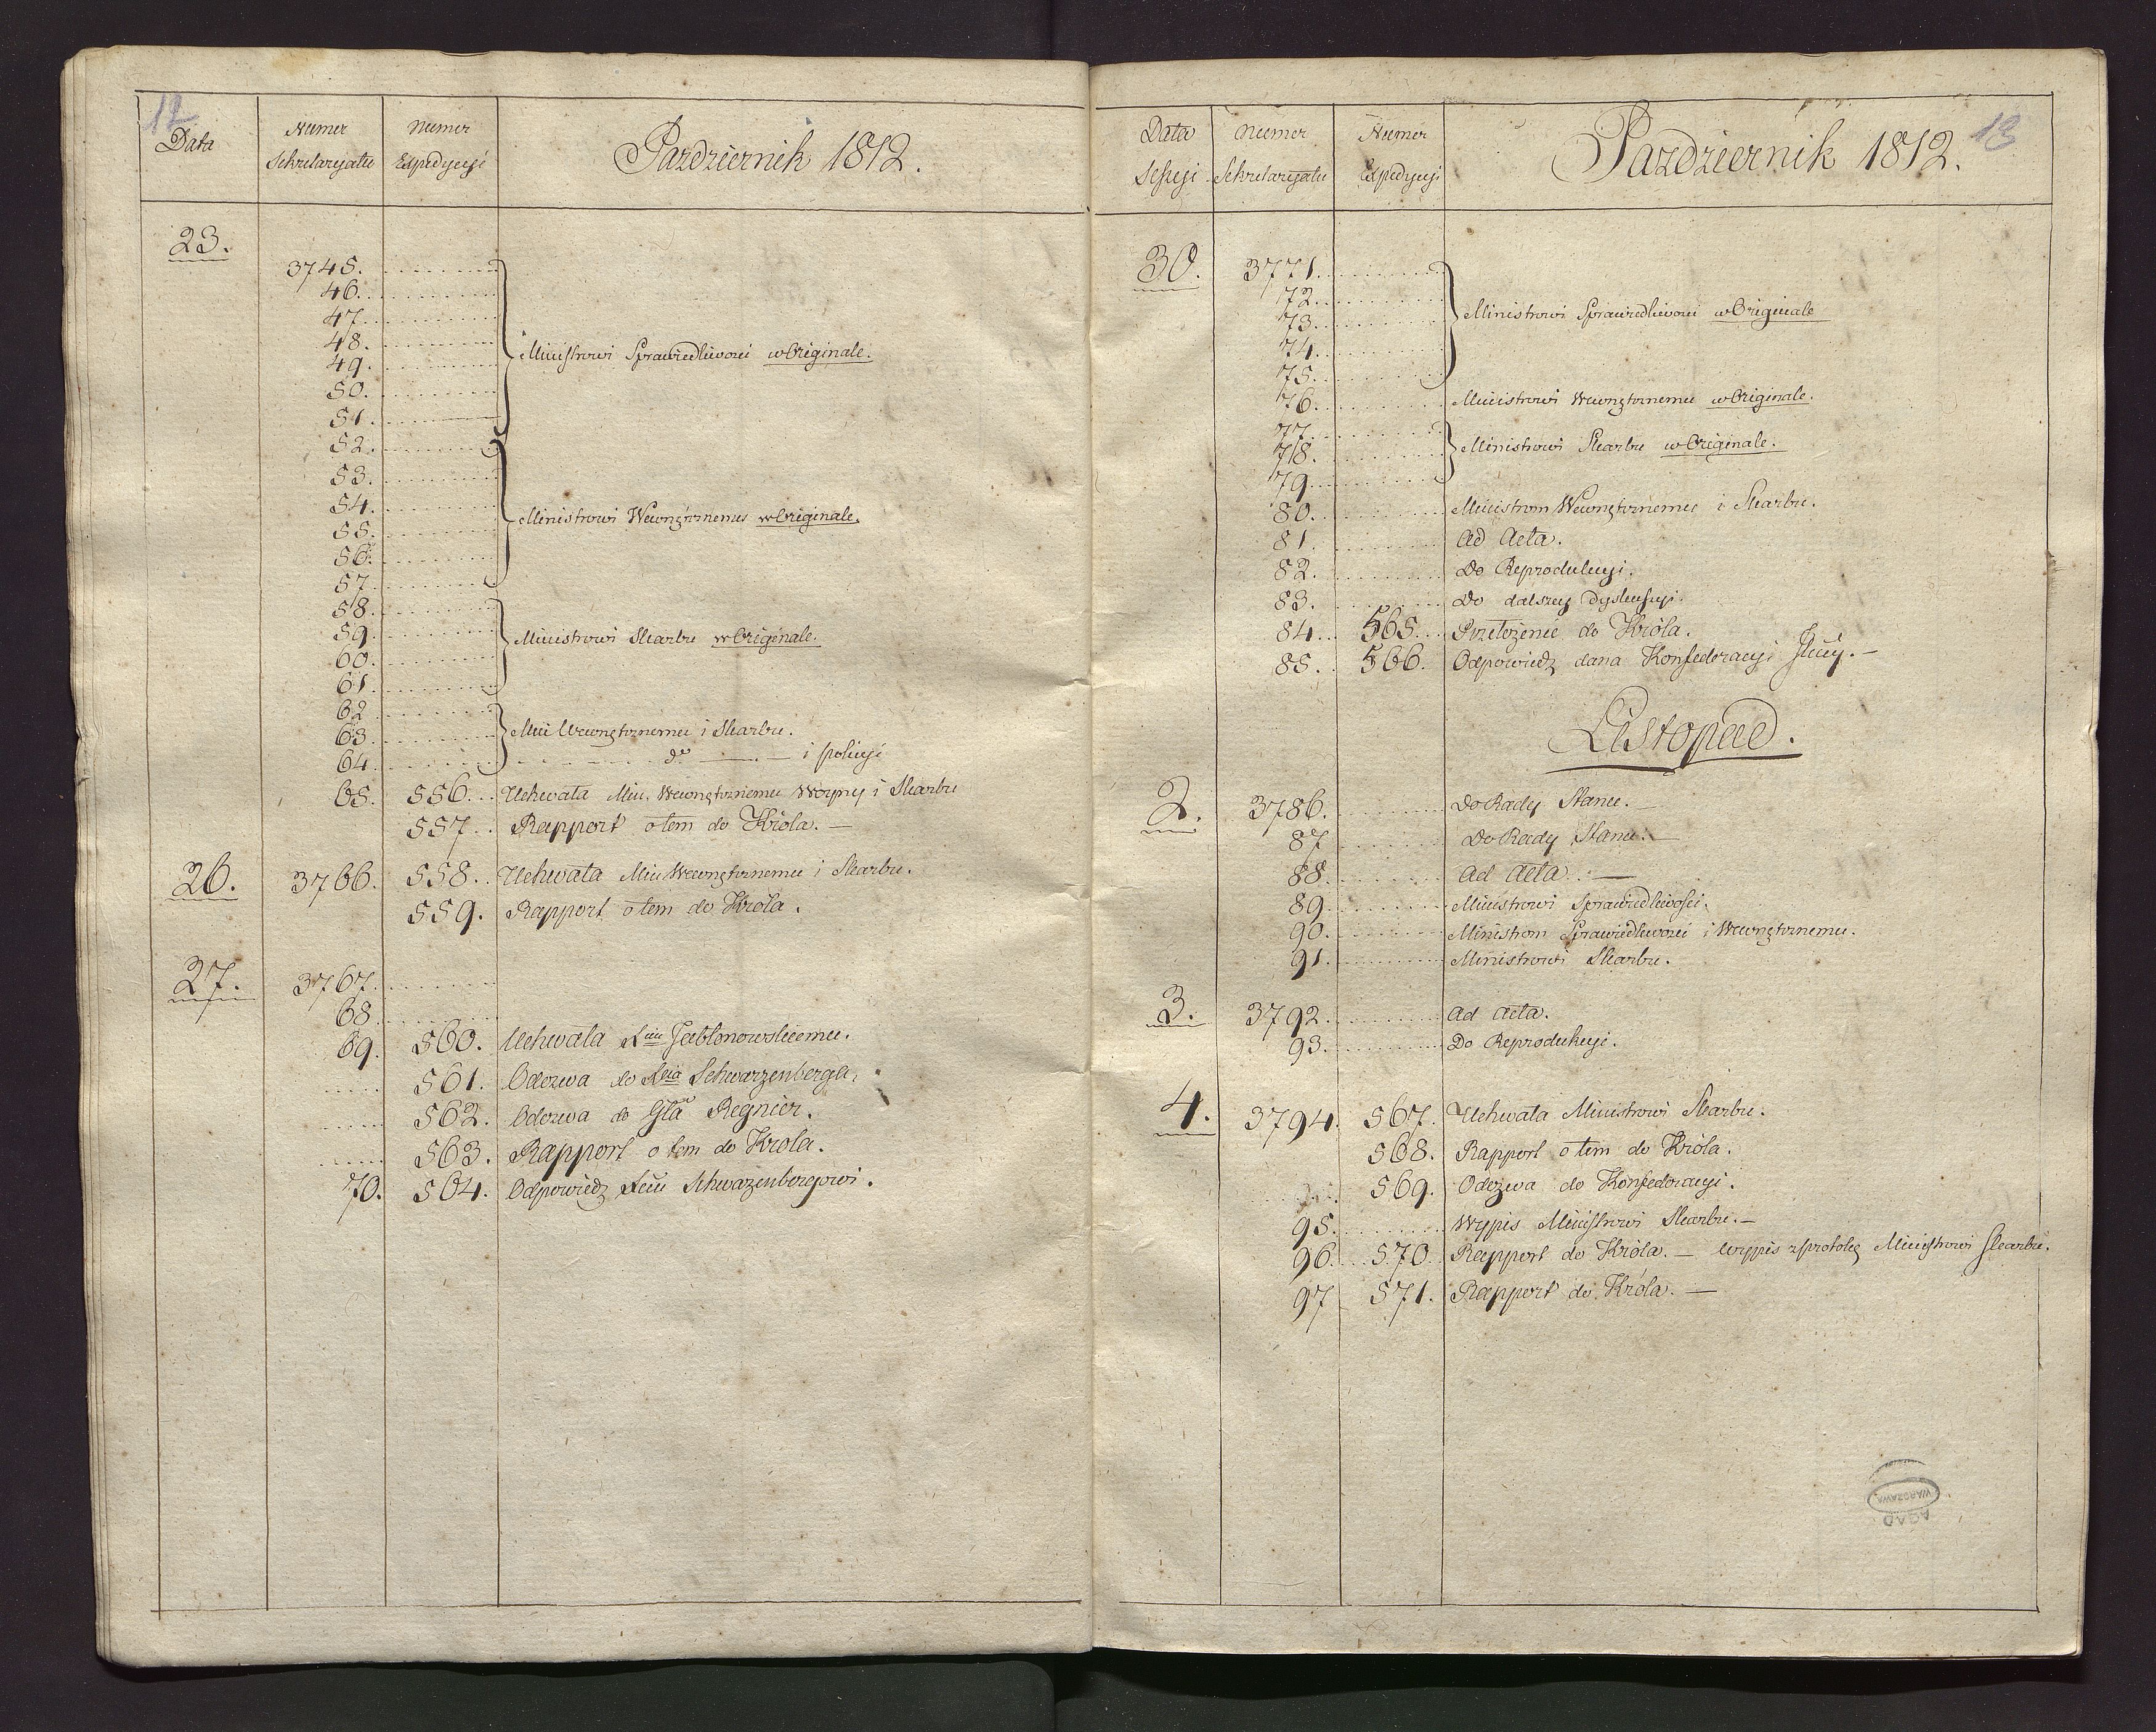 12
Data
Numer Sekretaryatu
Numer Expedycyi
Pazdziernik 1812.
23.
3745.
46.
47.
48.
49. Ministrowi Sprawiedliwosci w Originale.
50.
51.
52.
53.
54.
55. Ministrowi Wewnętrznemu w Originale.
56.
57.
58.
59. Ministrowi Skarbu w Originale.
60.
61.
62
63. Min Wewnętrznemu i Skarbu.
64. do — i policyi
65. 556. Uchwała Min. Wewnętrznemu Woyny i Skarbu
557. Rapport o tem do Króla. —
26. 3766. 558. Uchwała Min Wewnętrznemu i Skarbu.
559. Rapport o tem do Króla.
27. 3767.
68.
69. 560. Uchwała Xciu Jabłonowskiemu.
561. Odezwa do Xcia Schwarzenberga.
562. Odezwa do Gła Regnier.
563. Rapport o tem do Krola.
70. 564. Odpowiedz Xciu Schwazenbergowi.
13
Data Sessyi
Numer Sekretaryatu
Numer Expedycyi
Pazdziernik 1812.
30. 3771.
72.
73. Ministrowi Sprawiedliwosci w Originale
74.
75.
76. Ministrowi Wewnętrznemu w Originale.
77.
78. Ministrowi Skarbu w Originale.
79.
80. Ministrom Wewnętrznemu i Skarbu.
81. Ad Acta.
82. Do Reprodukcyi.
83. Do dalszey Dyskussyi.
84. 565. Przełożenie do Króla.
85. 566. Odpowiedz dana Konfederacyi —
Listopad.
2. 3786. Do Rady Stanu. —
87 Do Rady Stanu. —
88. Ad Acta. —
89. Ministrowi Sprawiedliwości.
90. Ministrom Sprawiedliwosci i Wewnętrznemu.
91. Ministrowi Skarbu.
3. 3792. Ad Acta.
93. Do Reprodukcyi.
4. 3794. 567. Uchwała Ministrowi Skarbu.
568. Rapport o tem do Króla.
569. Odezwa do Konfederacyi.
95. Wypis Ministrowi Skarbu. —
96. 570. Rapport do Króla. — Wypis z protokę Ministrowi Skarbu.
97 571. Rapport do Króla. —
AGAD
WARSZAWA